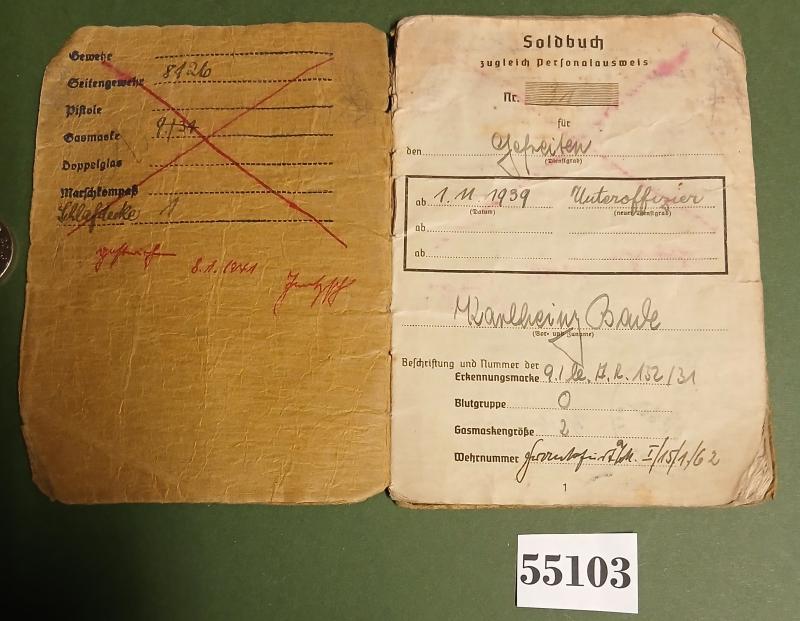 Gewehr
Seitengewehr 8126
Pistole
Gasmaske 9/31
Doppelglas
Marschkompaß
Schlafdecke 1
8.1.1941
Soldbuch
zugleich Personalausweis
Nr. 31
für
den Gefreiten
(Dienstgrad)
ab 1.11.1939 Unteroffizier
(Datum) (neuer Dienstgrad)
ab
ab
Karlheinz Bade
(Vor- und Zuname)
Beschriftung und Nummer der
Erkennungsmarke 9./le. J.R. 152/31
Blutgruppe O
Gasmaskengröße 2
Wehrnummer Frankfurt a/M. I/15/1/62
1
55103